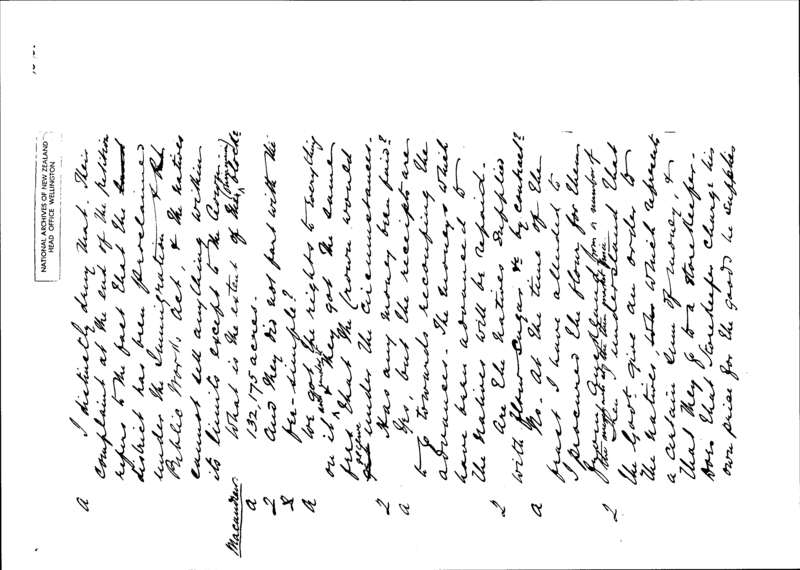 NATIONAL ARCHIVES OF NEW ZEALAND
HEAD OFFICE WELLINGTON
a I distinctly deny that. Their
complaint at the end of the petition
refers to the fact that the
district has been proclaimed
under the Immigration &
Public Works Act, & the natives
cannot sell anything within
its limits except to the Government
Macandrew. What is the extent of this block?
a 132,175 acres.
Q And they did not part with the
fee-simple?
a We got the rights to everything
on it and under it & they got the same
price that the Crown would
receive under the circumstances.
Q Has any money been paid?
a Yes, but the receipts are
to go towards recouping the
advances. The moneys which
have been advanced to
the natives will be repaid.
Q Are the natives supplied
with flour sugar &c by contract?
a No. At the time of the
tract I have alluded to
I procured the flour for them
from a number of
Q Then I understand that
the Govt. give an order to
the natives, notes which represent
a certain sum of money, &
that they go to a storekeeper.
Does that storekeeper charge his
own price for the goods he supplies